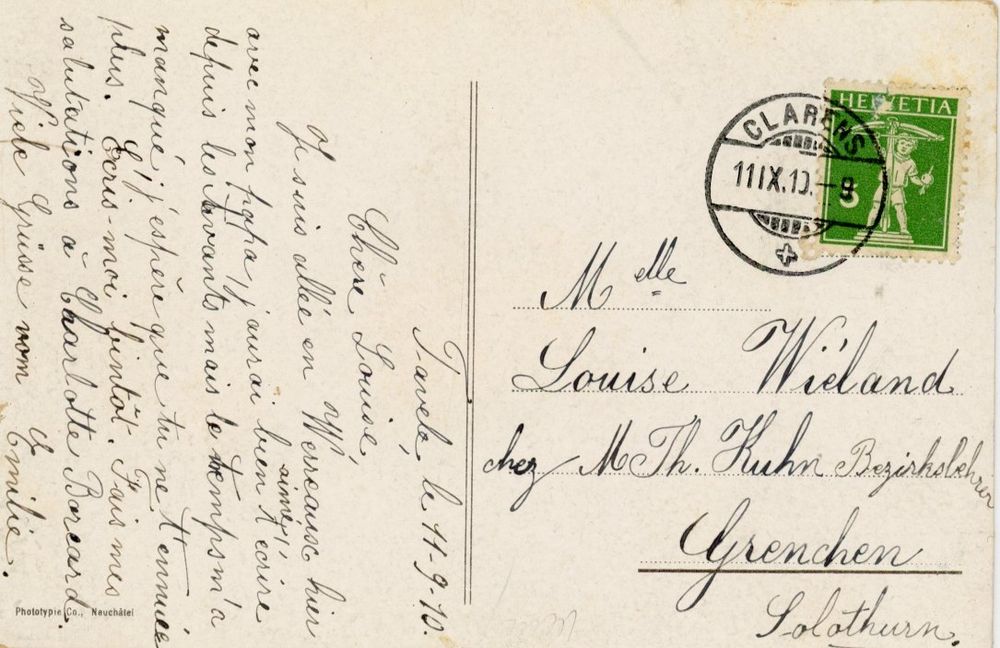 Tavel, le 11-9-10.
Chère Louise,
Je suis allée en Verreaux hier
avec mon papa j'aurai bien t'ecrire
aimer
depuis les Avants mais le temps m'a
manqué; j'espère que tu ne t'ennuie
plus. Ecris-moi bintôt. Fais mes
salutations à Charlotte Borcard.
Viele Grüsse vom Emilie.
HELVETIA
5
CLARENS
11 IX.10.-9
Melle
Louise Wieland
chez M Th. Kuhn Bezirkslehrer
Grenchen
Solothurn.
Phototypie Co., Neuchâtel